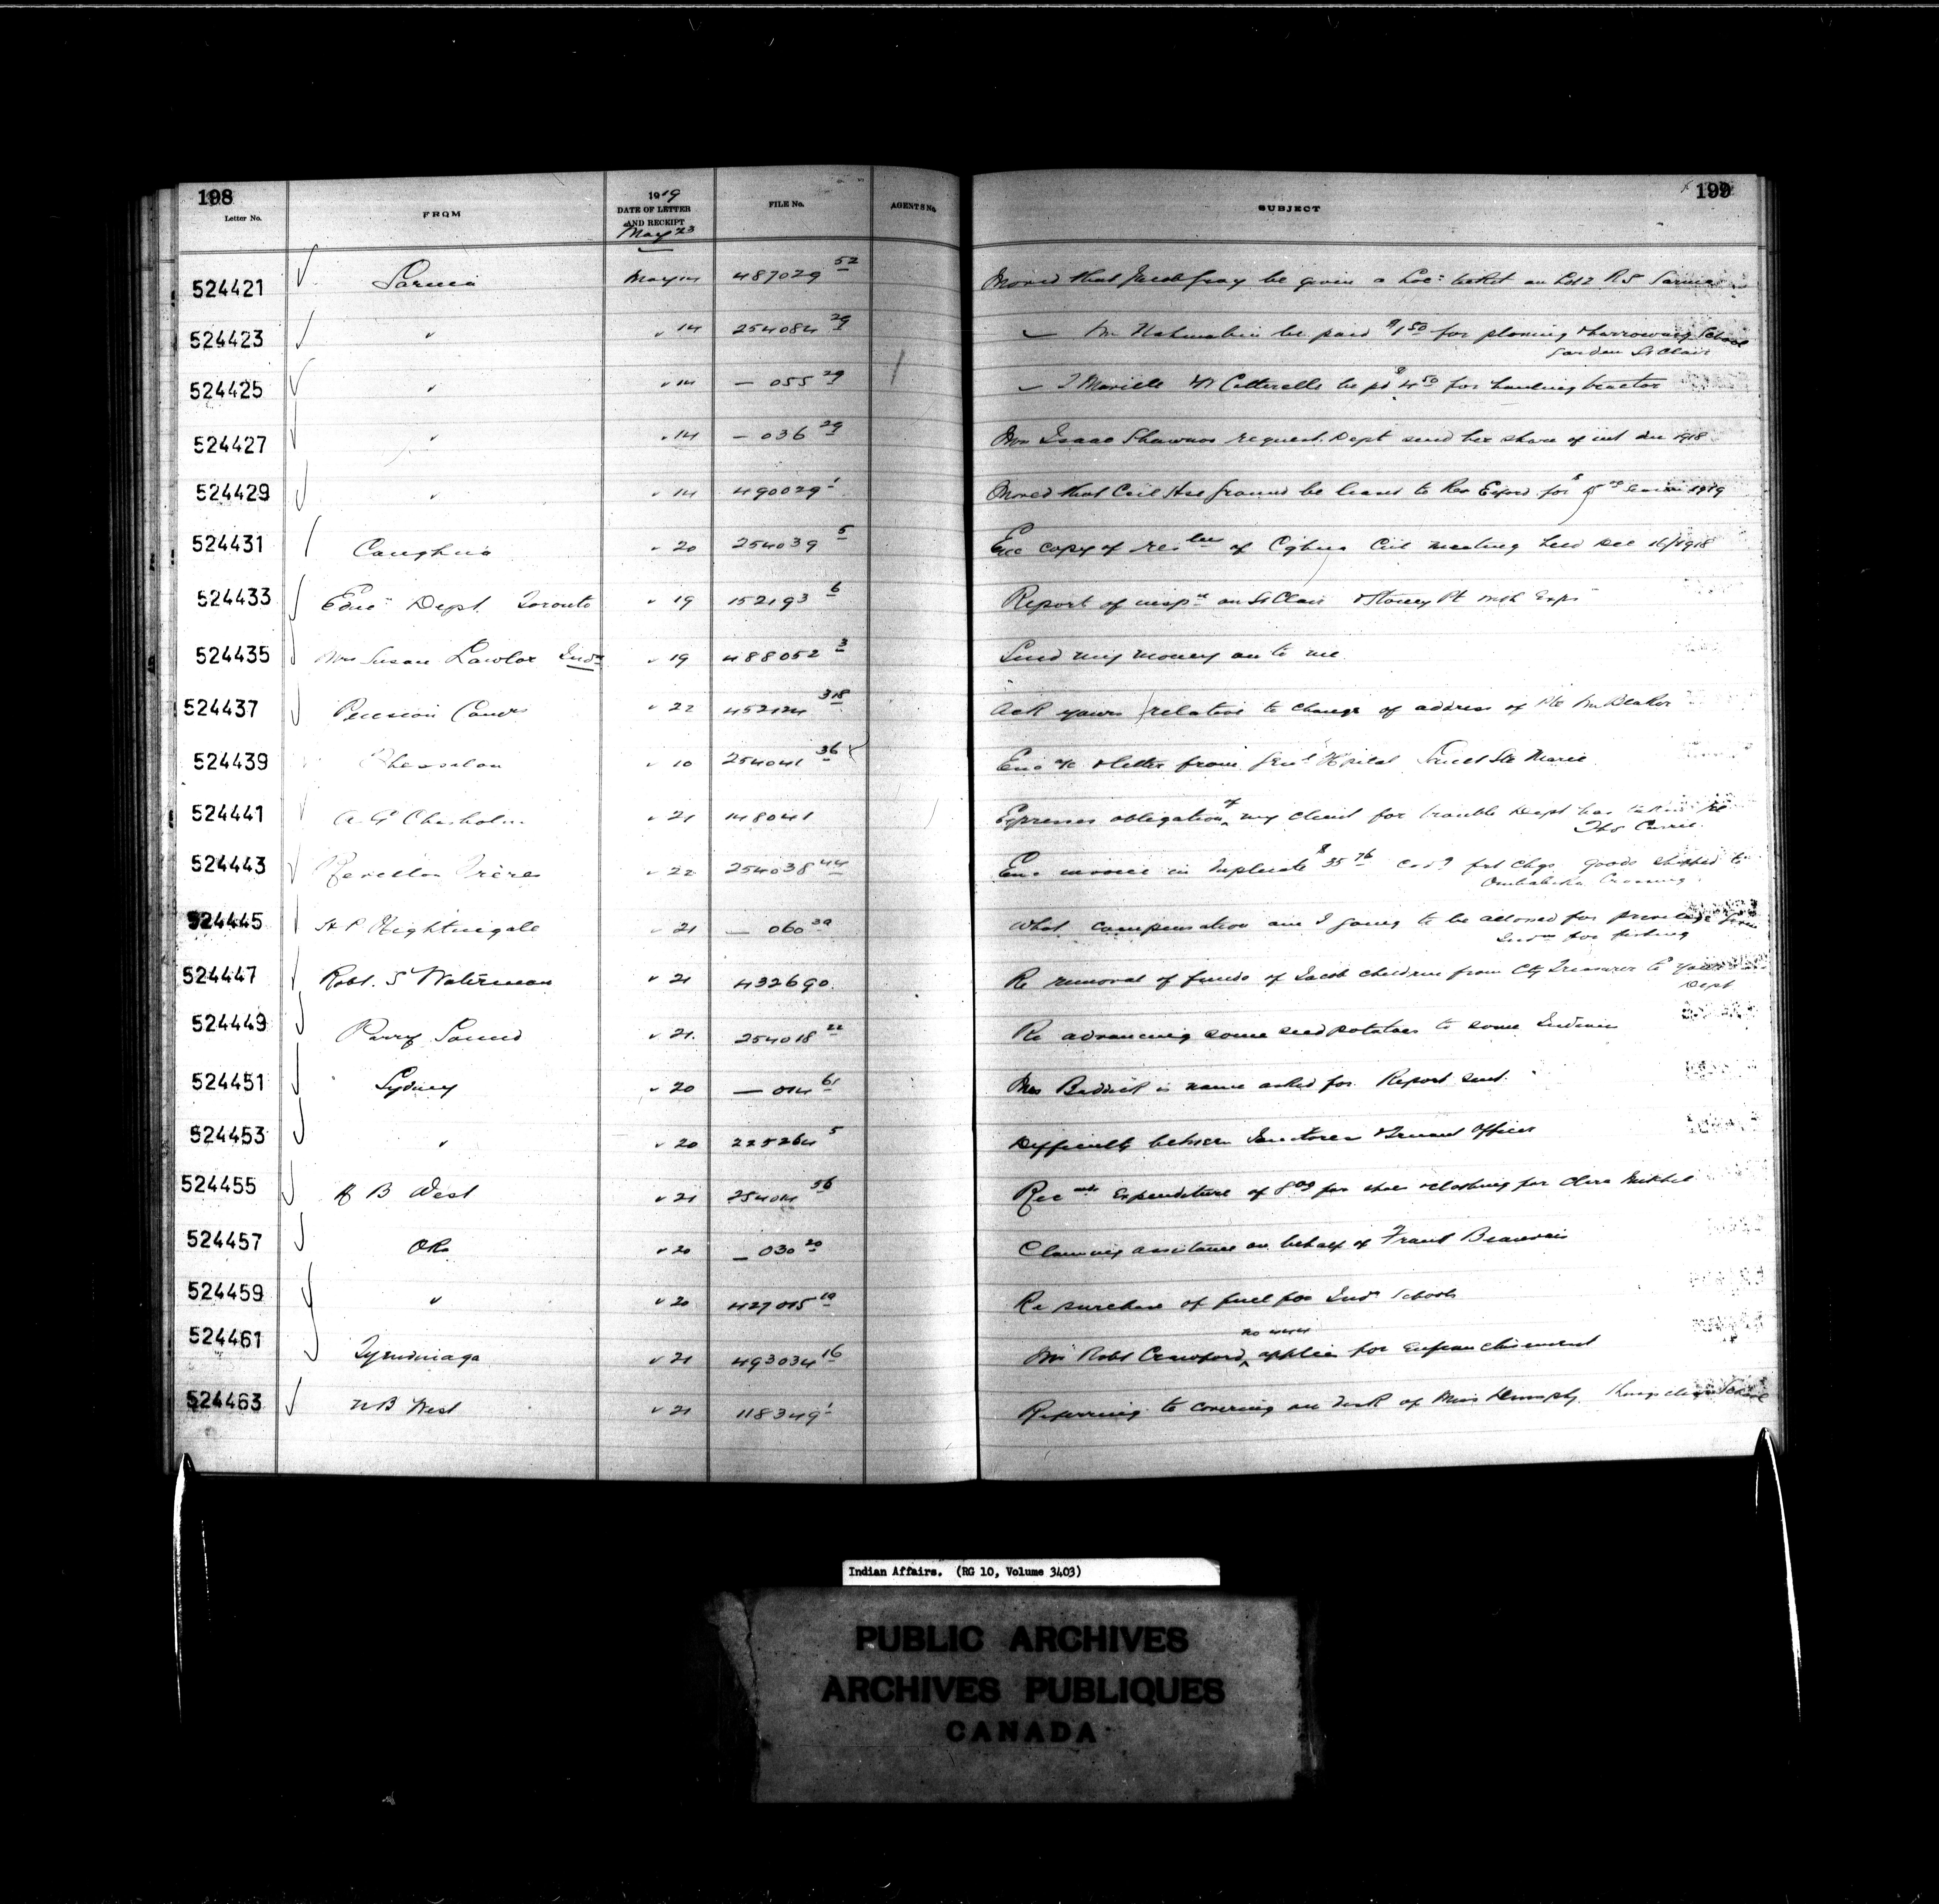 198
199
Letter No.
FROM
1919
DATE OF LETTER
AND RECEIPT
May 23
FILE No.
AGENTS No.
SUBJECT
524421 Sarnia May 14 487029 52 Moved that Jacob Gray be given a Loc: ticket on Lot 2 R5 Sarnia
524423 " " 14 254084 29 — Wm be paid $1 50 for plowing & harrowing School
Garden St Clair
524425 " " 14 — 055 29 — be pd $4 50 for hauling tractor
524427 " " 14 — 036 29 Mrs Isaac Shawnoo request. Dept send her share of int due 1918
524429 " " 14 490029 1 Moved that Ccil Hse ground be leased to Rev for $ 1919
524431 Caughna " 20 254039 5 Enc copy of of Ccil meeting held Dec 16/1918
524433 Educ Dept. Toronto " 19 152193 6 Report of insp on St Clair & Stoney Pt
524435 Mrs Susan Lawlor Indn " 19 488052 3 Send my money on to me
524437 Pension Comrs " 22 452124 318 Ack yours relative to change of address of Pte Wm Beaker
524439 Thessalon " 10 254041 36 Enc a/c & letter from Genl Hospital Sault Ste Marie
524441 A. G. Chisholm " 21 148041 Expresses obligation of my client for trouble Dept has taken re
Thos Currie.
524443 Revillon Frères " 22 254038 44 Enc invoice in duplicate $35 76 frt chgs goods shipped to
Ombabika Crossing.
524445 H P Nightingale " 21 — 060 39 What compensation am I going to be allowed for privilege from
Indns for fishing
524447 Robt. S Waterman " 21 432690. Re removal of funds of Jacob children from Cty Treasurer to your
Dept
524449 Parry Sound " 21. 254018 22 Re advancing some seed potatoes to some Indians
524451 Sydney " 20 — 014 61 Mrs is name asked for. Report sent.
524453 " " 20 225264 5 Difficulty between & Truant Officer
524455 " 21 254014 56 Rec expenditure of 8 00 for shoes & clothing for
524457 Oka " 20 — 030 20 Claiming assistance on behalf of Frank Beauvais
524459 " " 20 427015 10 Re purchase of fuel for Indn Schools
no
524461 Tyendinaga " 21 493034 16 Mr Robt Crawford applies for enfranchisement
524463 N B West " 21 118349 1 Referring to covering on desk of Miss School
Indian Affairs. (RG 10, Volume 3403)
PUBLIC ARCHIVES
ARCHIVES PUBLIQUES
CANADA